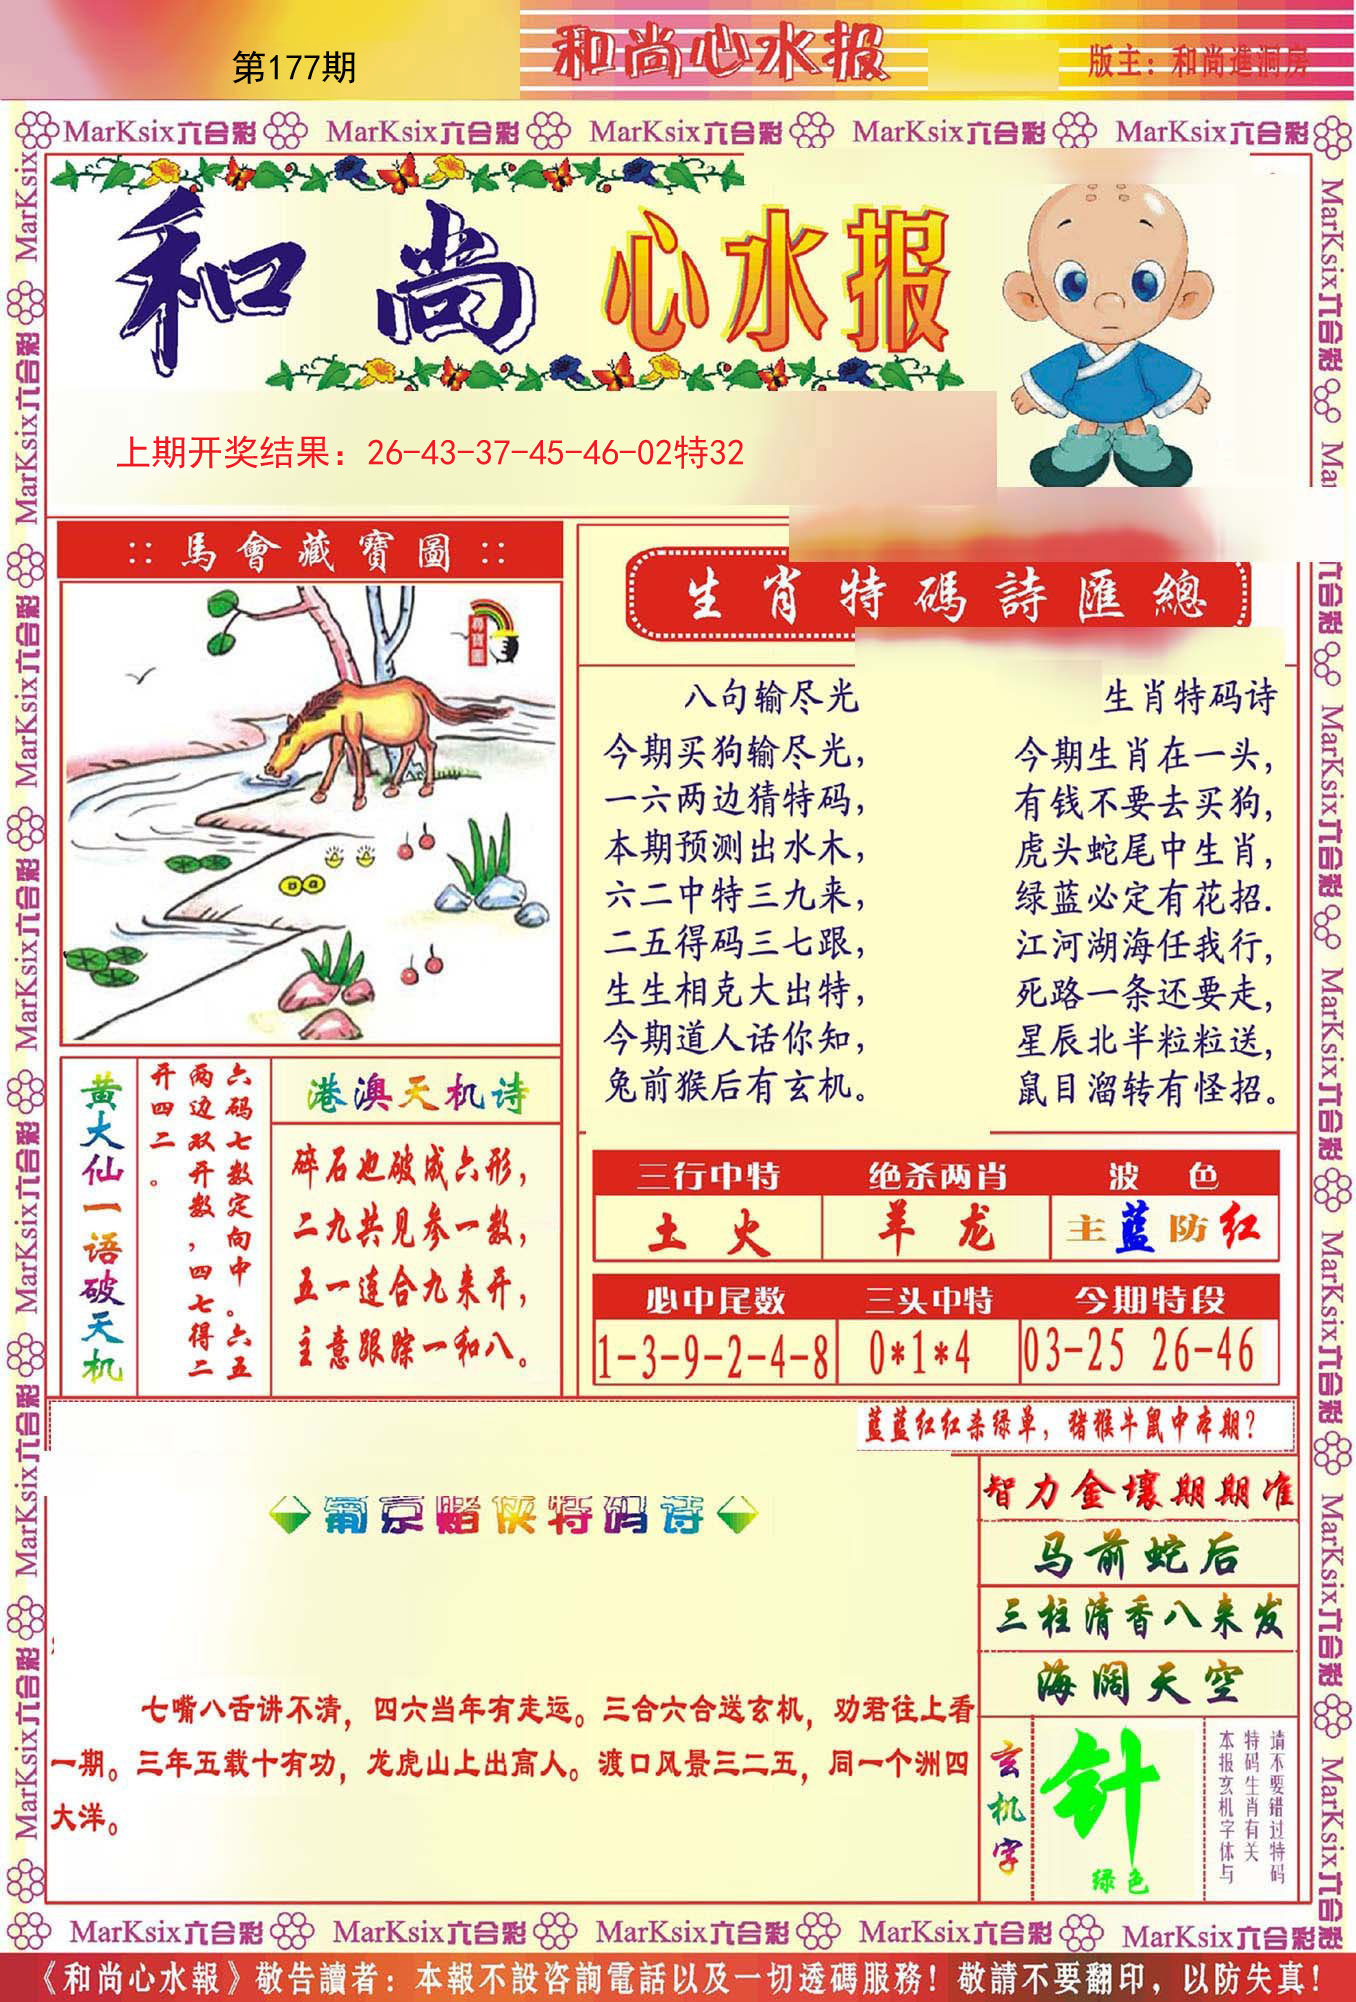 第177期
和尚心水报
版主：和尚進洞房
MarKsix六合彩 MarKsix六合彩 MarKsix六合彩 MarKsix六合彩 MarKsix六合彩
和尚 心水报
上期开奖结果：26-43-37-45-46-02特32
::馬會藏寶圖::
尋寶圖
生肖特碼詩匯總
八句输尽光
今期买狗输尽光，
一六两边猜特码，
本期预测出水木，
六二中特三九来，
二五得码三七跟，
生生相克大出特，
今期道人话你知，
兔前猴后有玄机。
生肖特码诗
今期生肖在一头，
有钱不要去买狗，
虎头蛇尾中生肖，
绿蓝必定有花招.
江河湖海任我行，
死路一条还要走，
星辰北半粒粒送，
鼠目溜转有怪招。
黄大仙一语破天机
六码七数定向中。六五
两边双开数，四七得二
开四二。
港澳天机诗
碎石也破成六形，
二九共见参一数，
五一连合九来开，
主意跟踪一和八。
三行中特 绝杀两肖 波 色
土 火 羊 龙 主蓝防红
必中尾数 三头中特 今期特段
1-3-9-2-4-8 0*1*4 03-25 26-46
蓝蓝红红杀绿单，猪猴牛鼠中本期？
葡京赌侠特码诗
七嘴八舌讲不清，四六当年有走运。三合六合送玄机，劝君往上看
一期。三年五载十有功，龙虎山上出高人。渡口风景三二五，同一个洲四
大洋。
智力金壤期期准
马前蛇后
三柱清香八来发
海阔天空
玄机字
针
绿色
请不要错过特码
特码生肖有关
本报玄机字体与
MarKsix六合彩 MarKsix六合彩 MarKsix六合彩 MarKsix六合彩 MarKsix六合彩
《和尚心水報》敬告讀者：本報不設咨詢電話以及一切透碼服務！敬請不要翻印，以防失真！